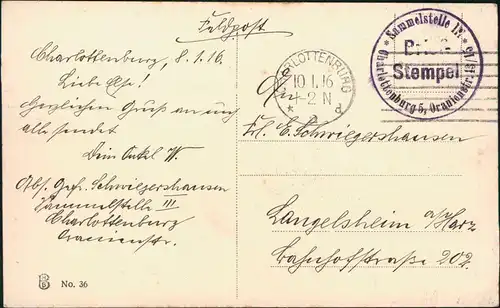 Feldpost
Charlottenburg, 8.1.16.
Liebe
Herzlichen Gruß an euch
alle sendet
Dein Onkel W.
Abs. Gefr. Schwiegershausen
Sammelstelle III
Charlottenburg
Oranienstr.
CHARLOTTENBURG
10.1.16
2 N
d
An
Frl. E. Schwiegershausen
Langelsheim a/Harz
Bahnhofstraße 202.
* Sammelstelle IV. *
Brief-
Stempel
Charlottenburg 5, Oranienstr.
B No. 36